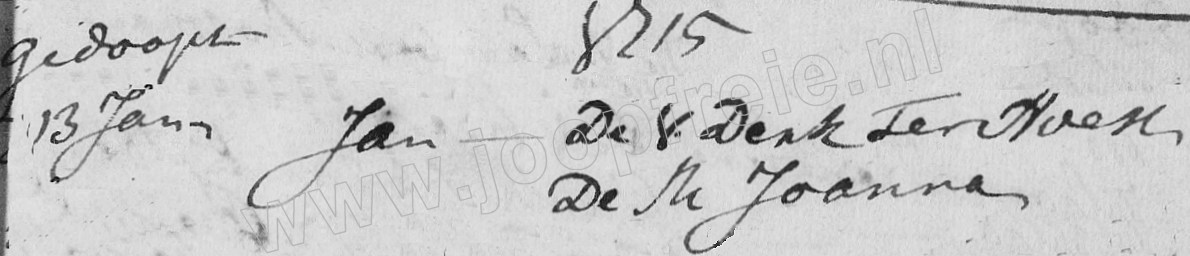 gedoopt 1715
13 Jan Jan — De V. Derk Ter Hoest
De M Joanna
www.joopfreie.nl